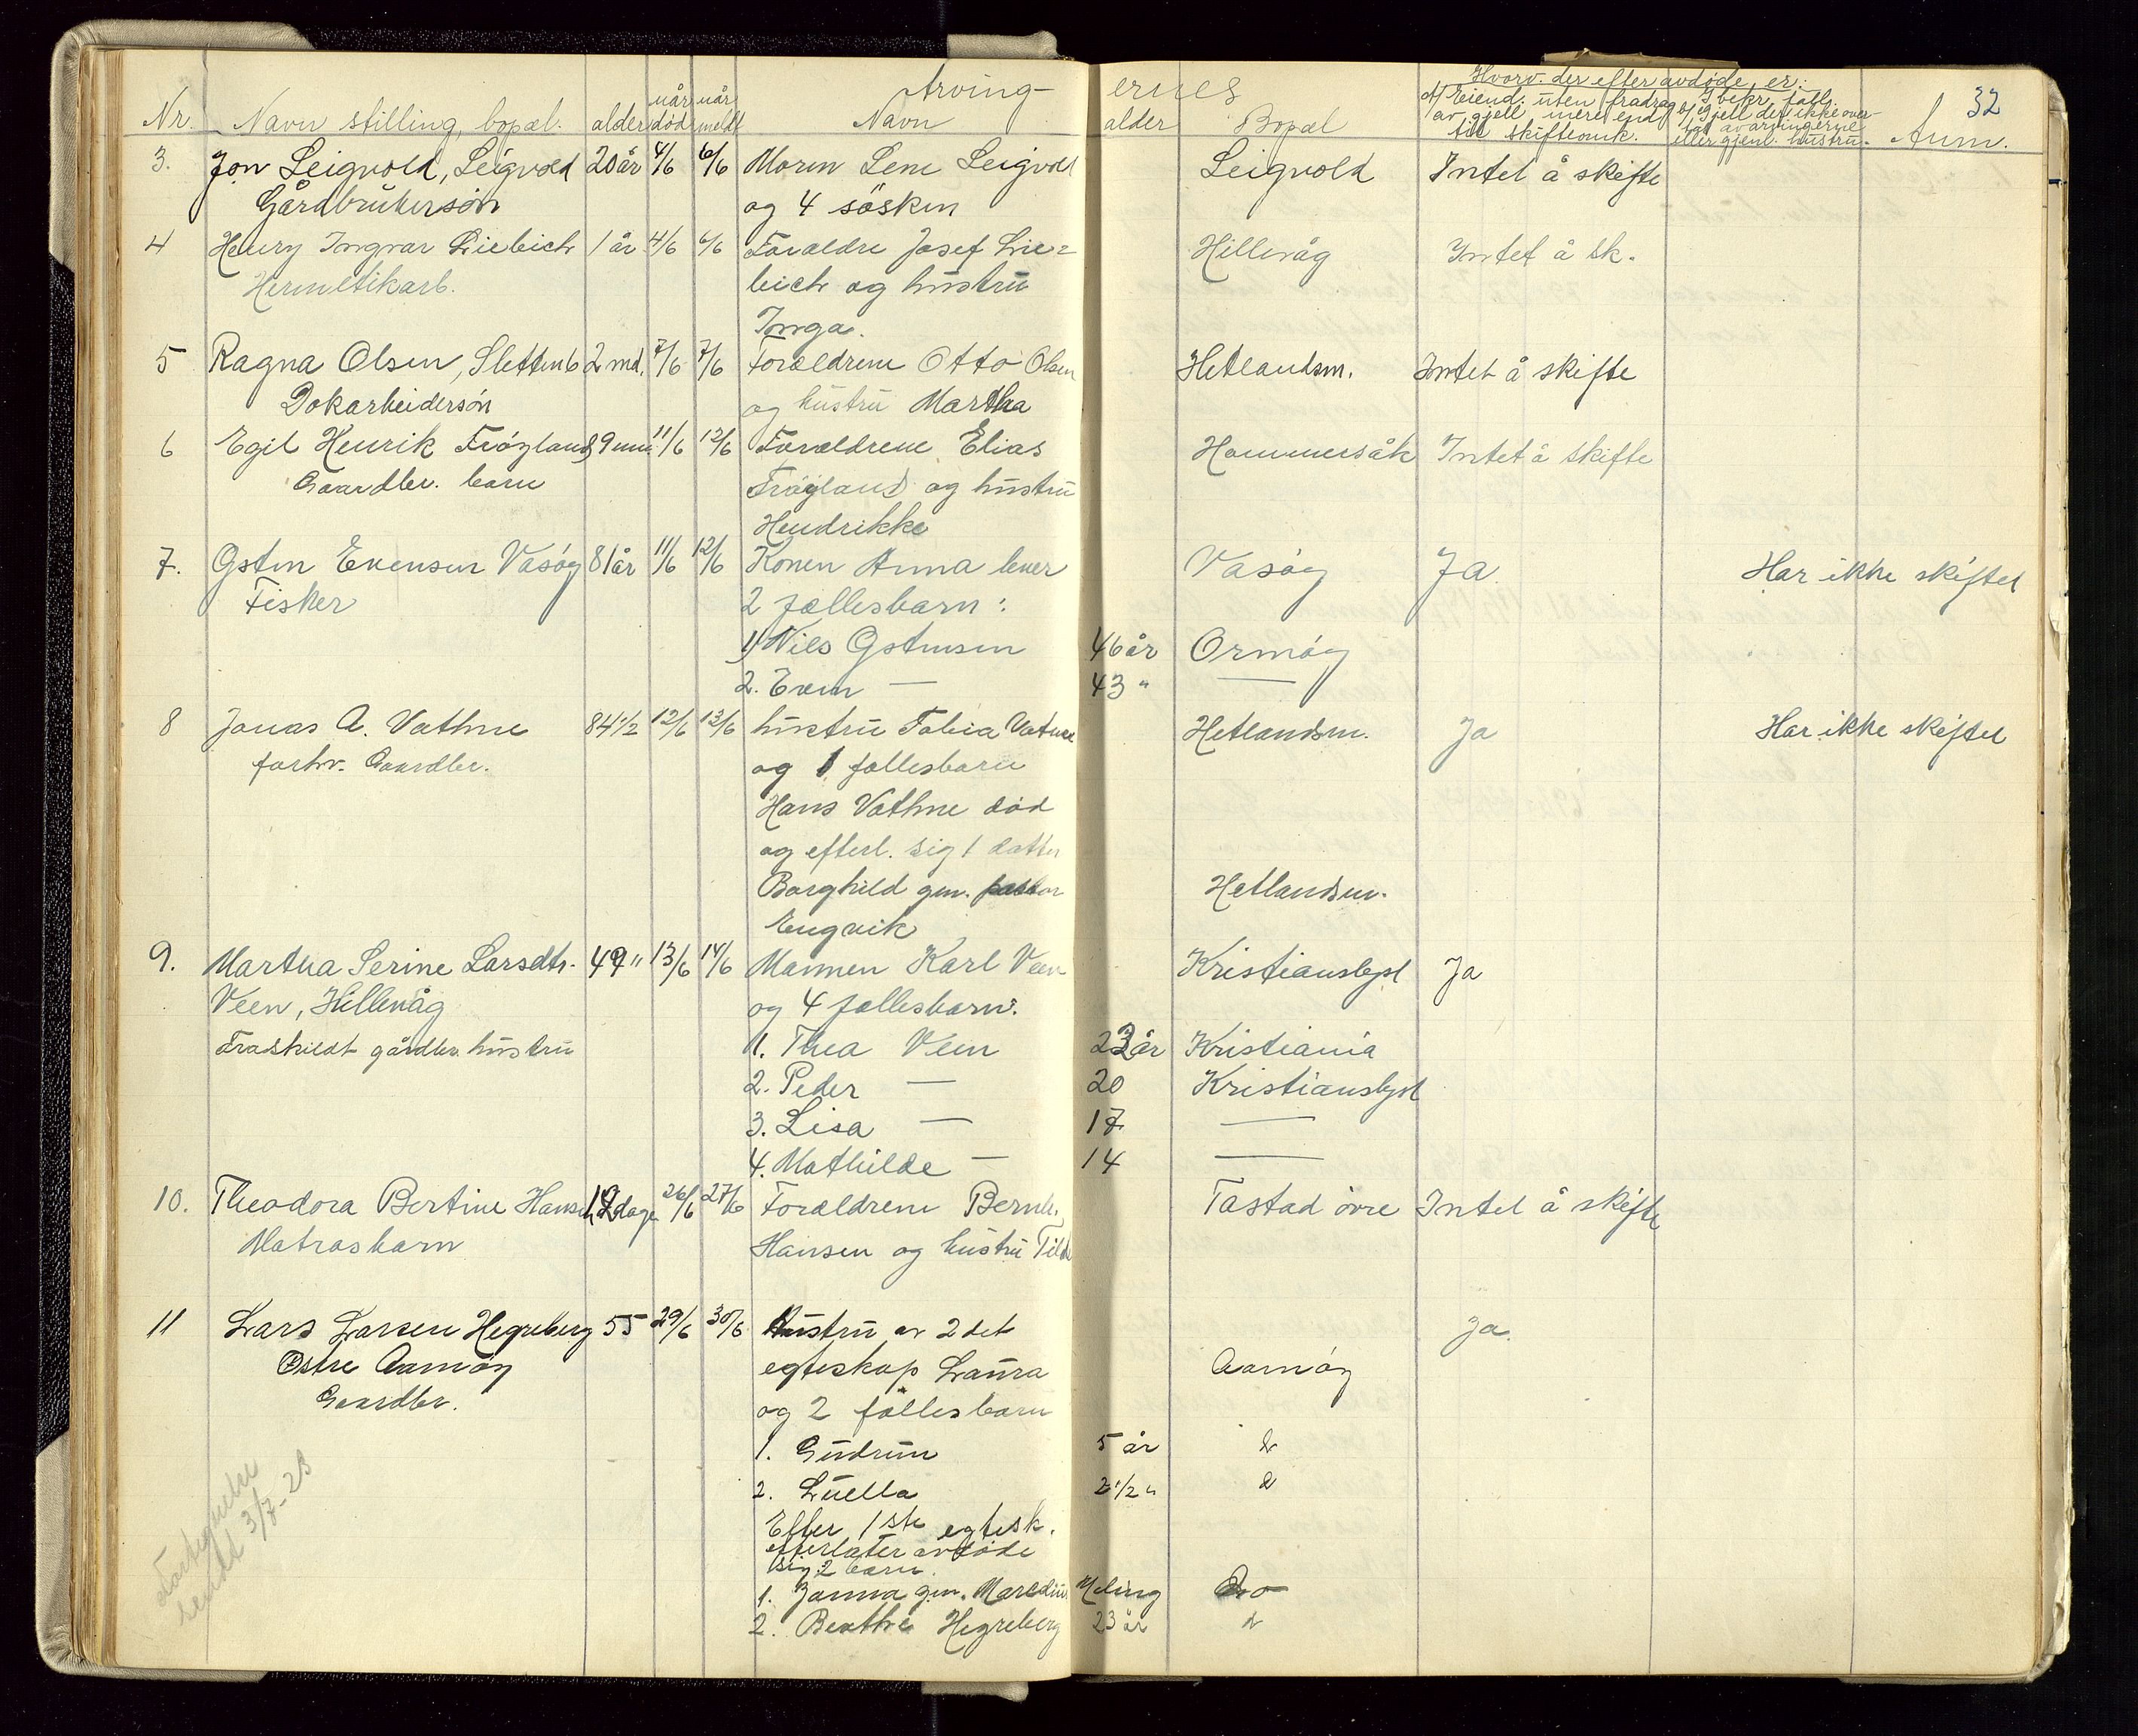 32
Arvingernes
Hvorv. der efter avdøde, er:
Nr. Navn stilling, bopæl. alder når død når meldt Navn alder Bopæl
A) Eiend. uten fradrag av gjell mere end til skifteomk.
Anm.
3. Jon Leigvold, Leigvold 20 år 4/6 6/6 Maren Lene Leigvold Leigvold Intet å skifte
Gårdbrukersøn og 4 søsken
4 Henry Ingvar Liebich 1 år 4/6 6/6 Forældre Josef Lie= Hillevåg Intet å sk.
Hermetikarb. bich og hustru
Inga.
5 Ragna Olsen, Slettenb 2 md. 7/6 7/6 Forældrene Otto Olsen Hetlandsm. Intet å skifte
Dokarbeidersøn og hustru Martha
6 Egil Henrik Frøyland, 9 mn. 11/6 12/6 Forældrene Elias Hommersåk Intet å skifte
Gaardbr. barn Frøyland og hustru
Hendrikke
7. Østen Evensen Vasøy 81 år 11/6 12/6 Konen Anna lever Vasøy Ja Har ikke skiftet
Fisker 2 fællesbarn:
1) Nils Østensen 46 år Ormøy
2. Even — 43 " —
8 Jonas A. Vathne 84 1/2 12/6 13/6 hustru Tobia Vatne Hetlandsm. Ja Har ikke skiftet
forhv. Gaardbr. og 1 fællesbarn
Hans Vathne død
og efterl. sig 1 datter
Borghild gm. pastor Hetlandsm.
Engvik
9. Martha Serine Larsdtr. 49 " 13/6 14/6 Mannen Karl Veen Kristianslyst Ja
Veen, Hillevåg og 4 fællesbarn:
Fraskildt gårdbr. hustru 1. Thea Veen 23 år Kristiania
2. Peder — 20 Kristianslyst
3. Lisa — 17 —
4. Mathilde — 14 —
10. Theodora Bertine Hansen dage 26/6 27/6 Forældrene Bernh. Tastad øvre Intet å skifte
Matrosbarn Hansen og hustru Tilda
11 Lars Larsen Hegreberg 55 29/6 30/6 Hustru av 2det Ja.
Østre Aamøy egteskap Laura Aamøy
Gaardbr. og 2 fællesbarn
1. Gudrun 5 år
2. Luella 2 1/2 "
Efter 1ste egtesk.
efterlater avdøde
sig 2 barn.
1. Janna gm. Maredius Meling Do
2. Berthe Hegreberg 23 år
sendt 3/7-23